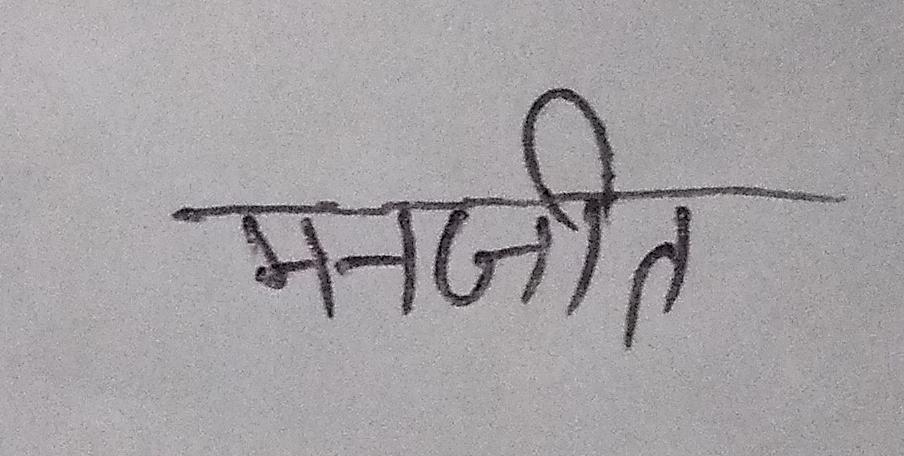 मनजीत